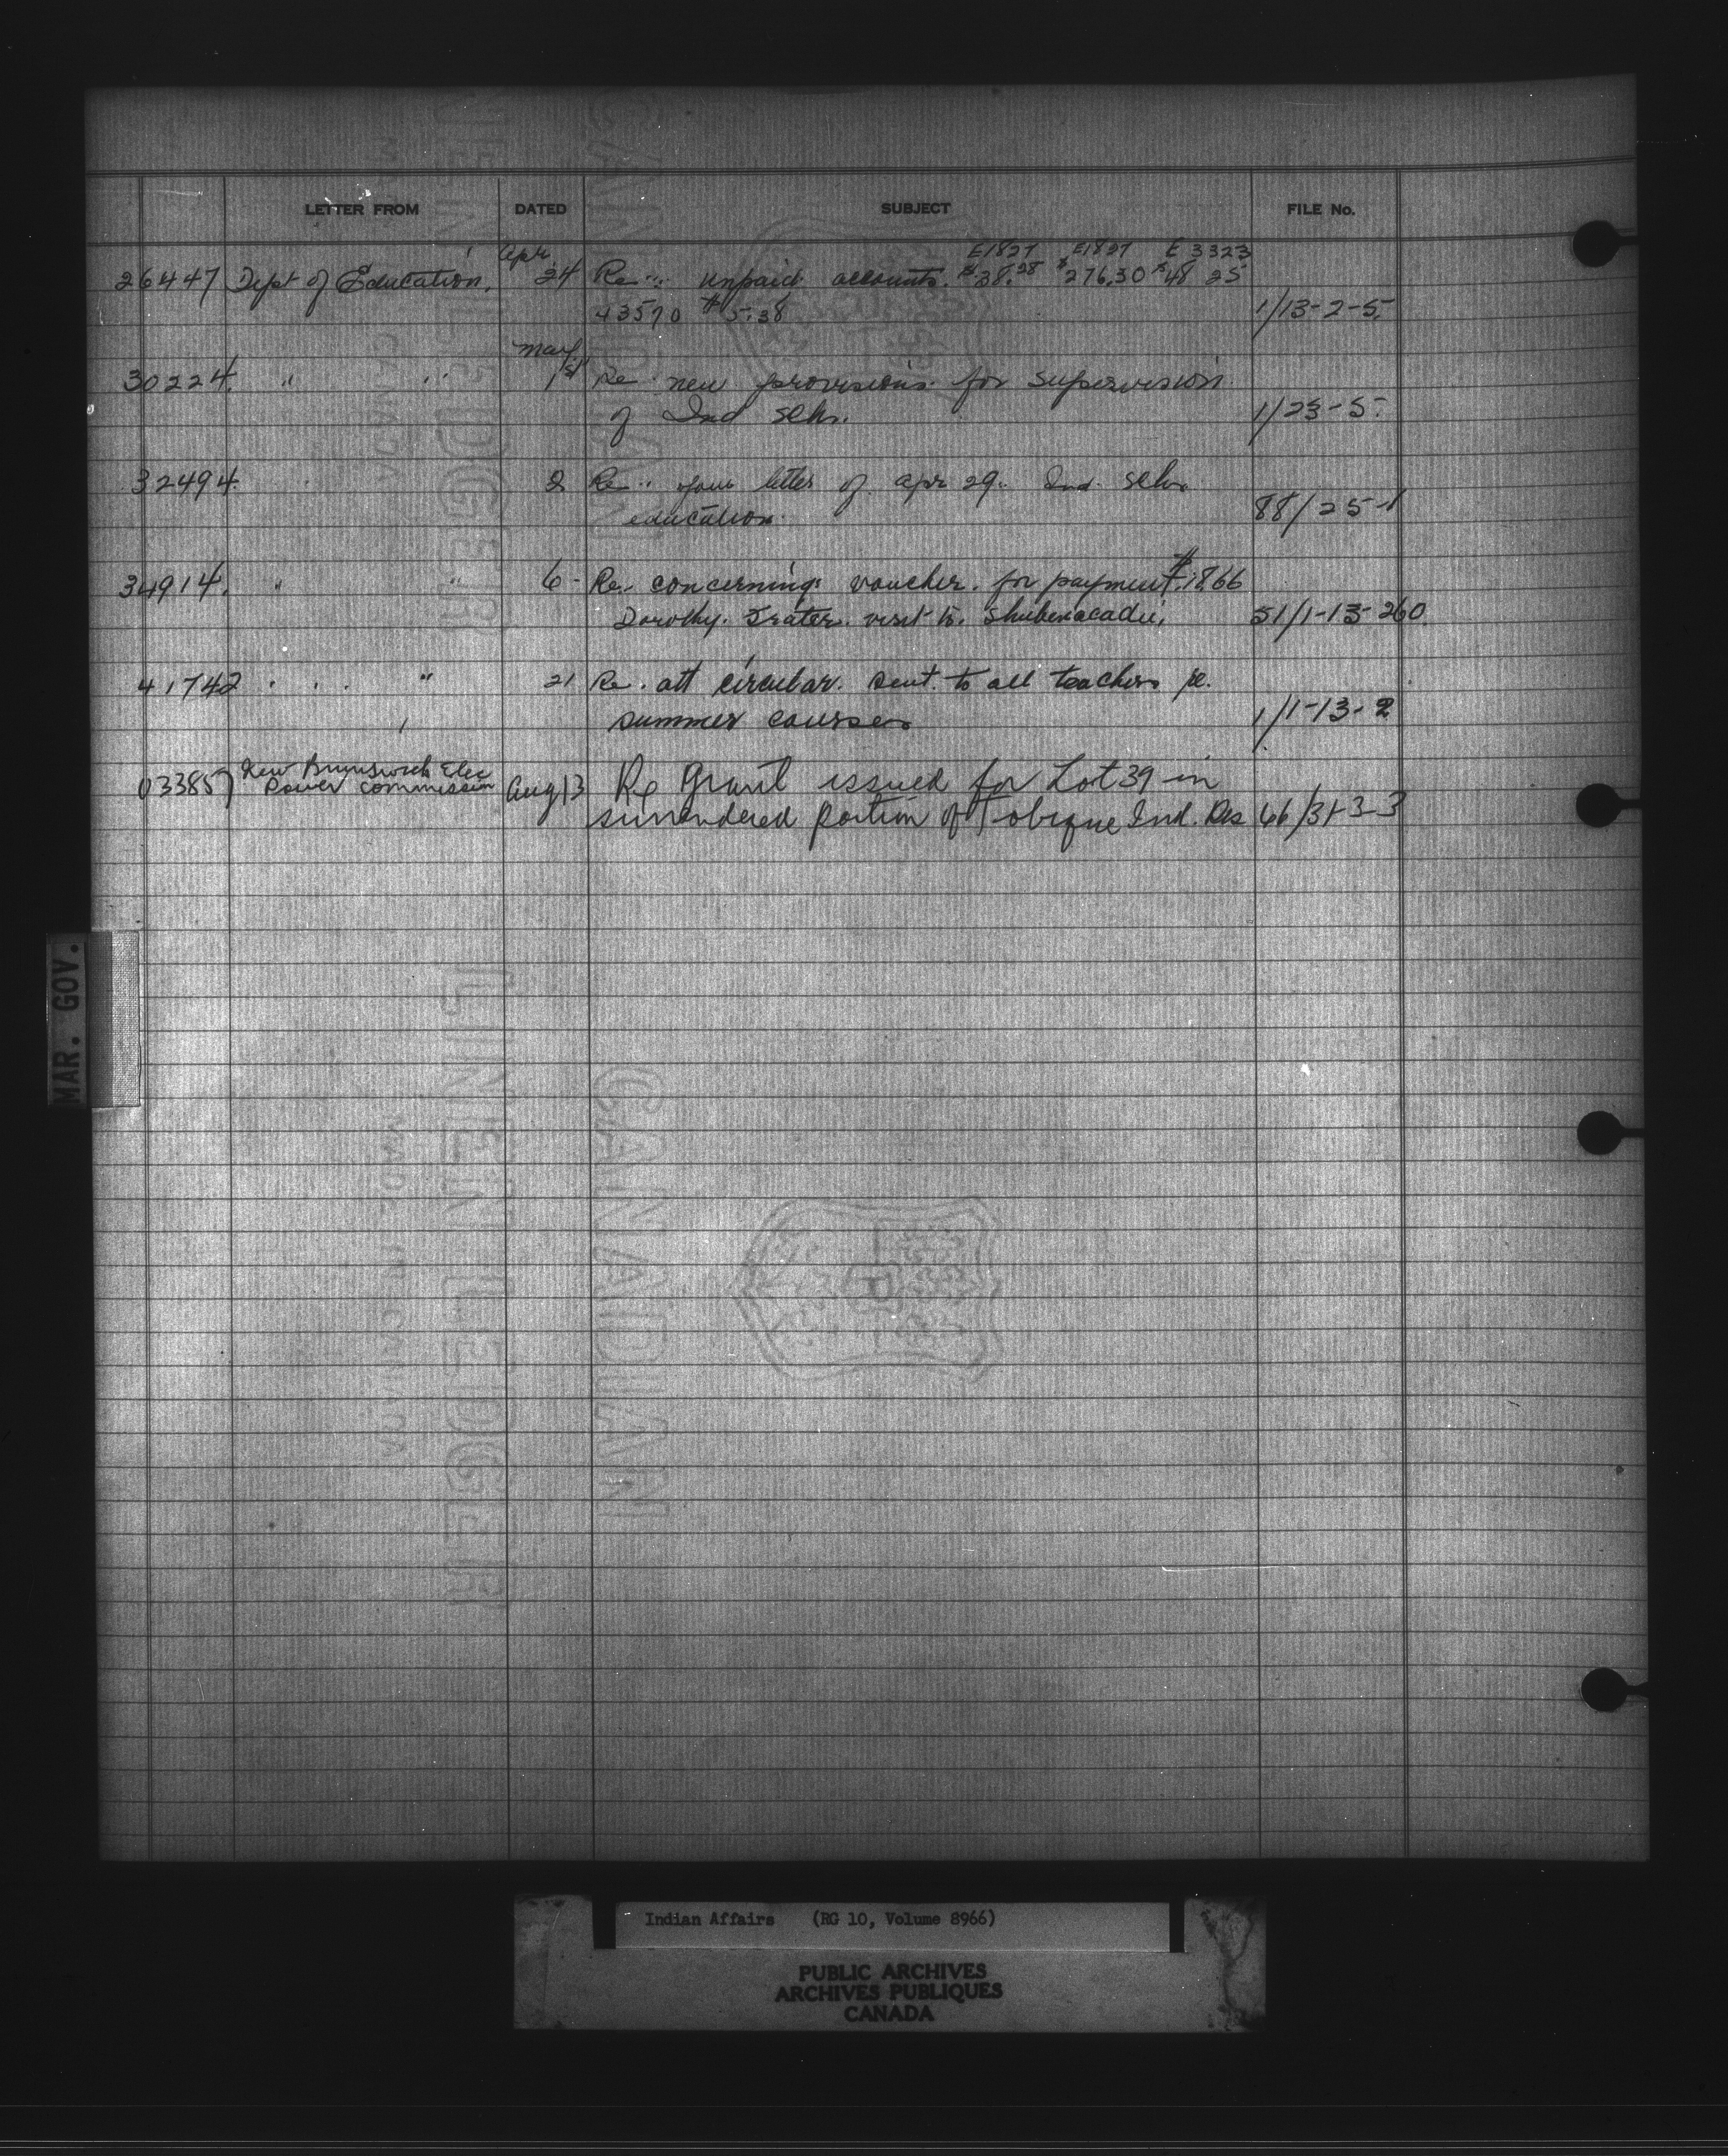 LETTER FROM DATED SUBJECT FILE No.
Apr. E1827 E1827 E 3323
26447 Dept of Education. 24 Re unpaid accounts. $38.28 $276.30 $48 25
43570 $5.38 1/13-2-5.
May
30224. " " 1st Re new provisions for supervision
of Ind schs. 1/23-5.
32494. 2 Re your letter of apr 29. Ind. schs
education. 88/25-1
34914. " " 6 - Re concerning voucher for payment $18.66
Dorothy. visit to. Shubenacadie. 51/1-13-260.
41742 " 21 Re. att circular. sent. to all teachers re.
summer courses 1/1-13-2
New Brunswick Elec
033857 Power Commission Aug 13 Re Grant issued for Lot 39 in
surrendered portion of Tobique Ind. Res 66/31-3-3
MAR. GOV.
CANADIAN
LINEN LEDGER
MADE IN CANADA
Indian Affairs (RG 10, Volume 8966)
PUBLIC ARCHIVES
ARCHIVES PUBLIQUES
CANADA